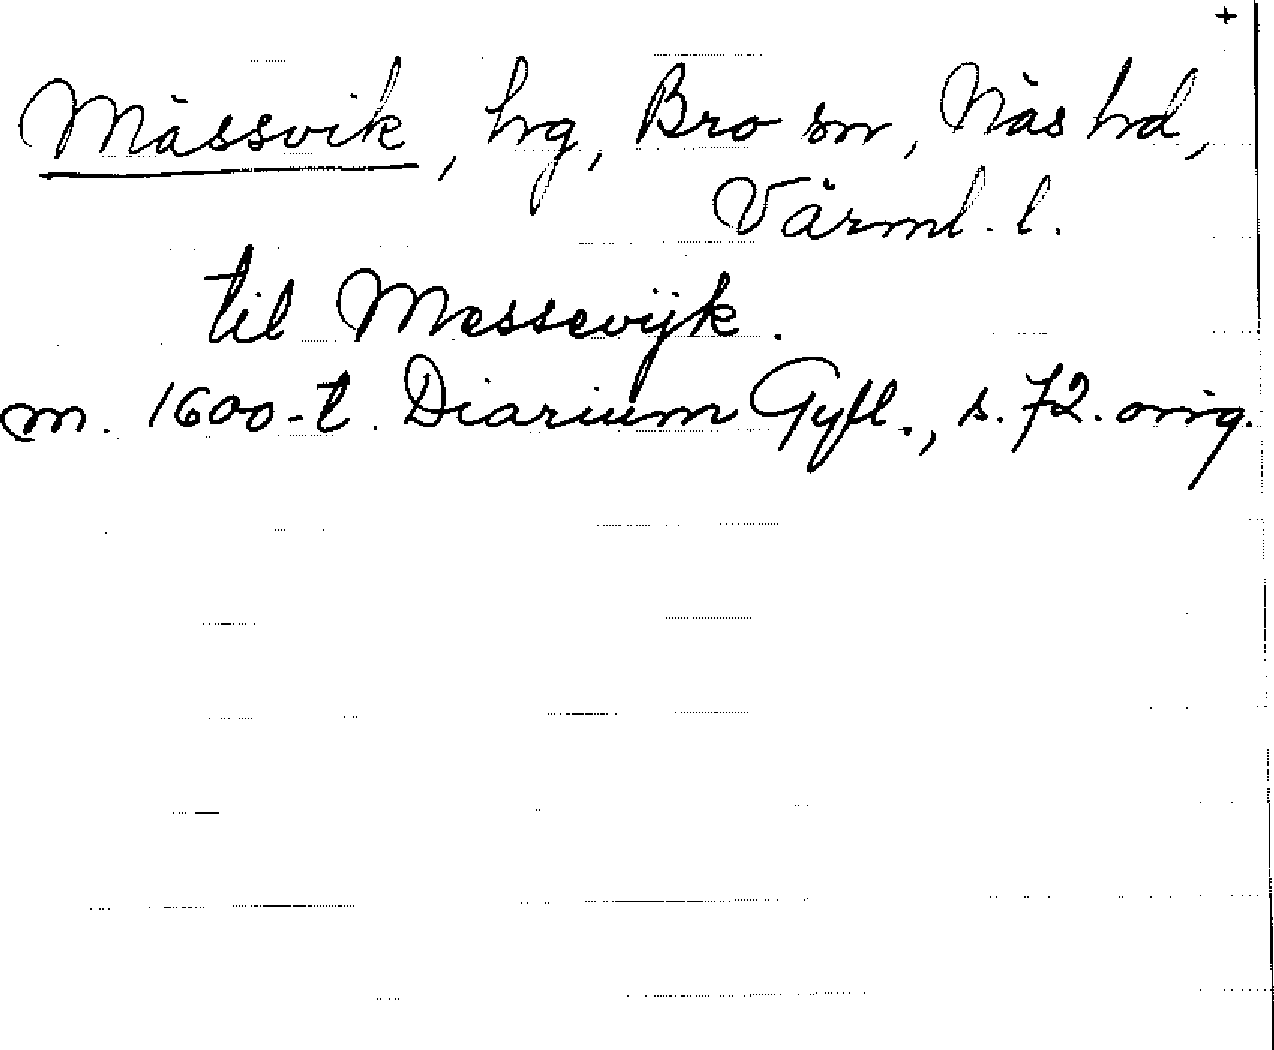 +
Mässvik, hg, Bro sn, Näs hd,
Värml. l.
til Messevijk.
m. 1600-t. Diarium Gyll., s. 72. orig.